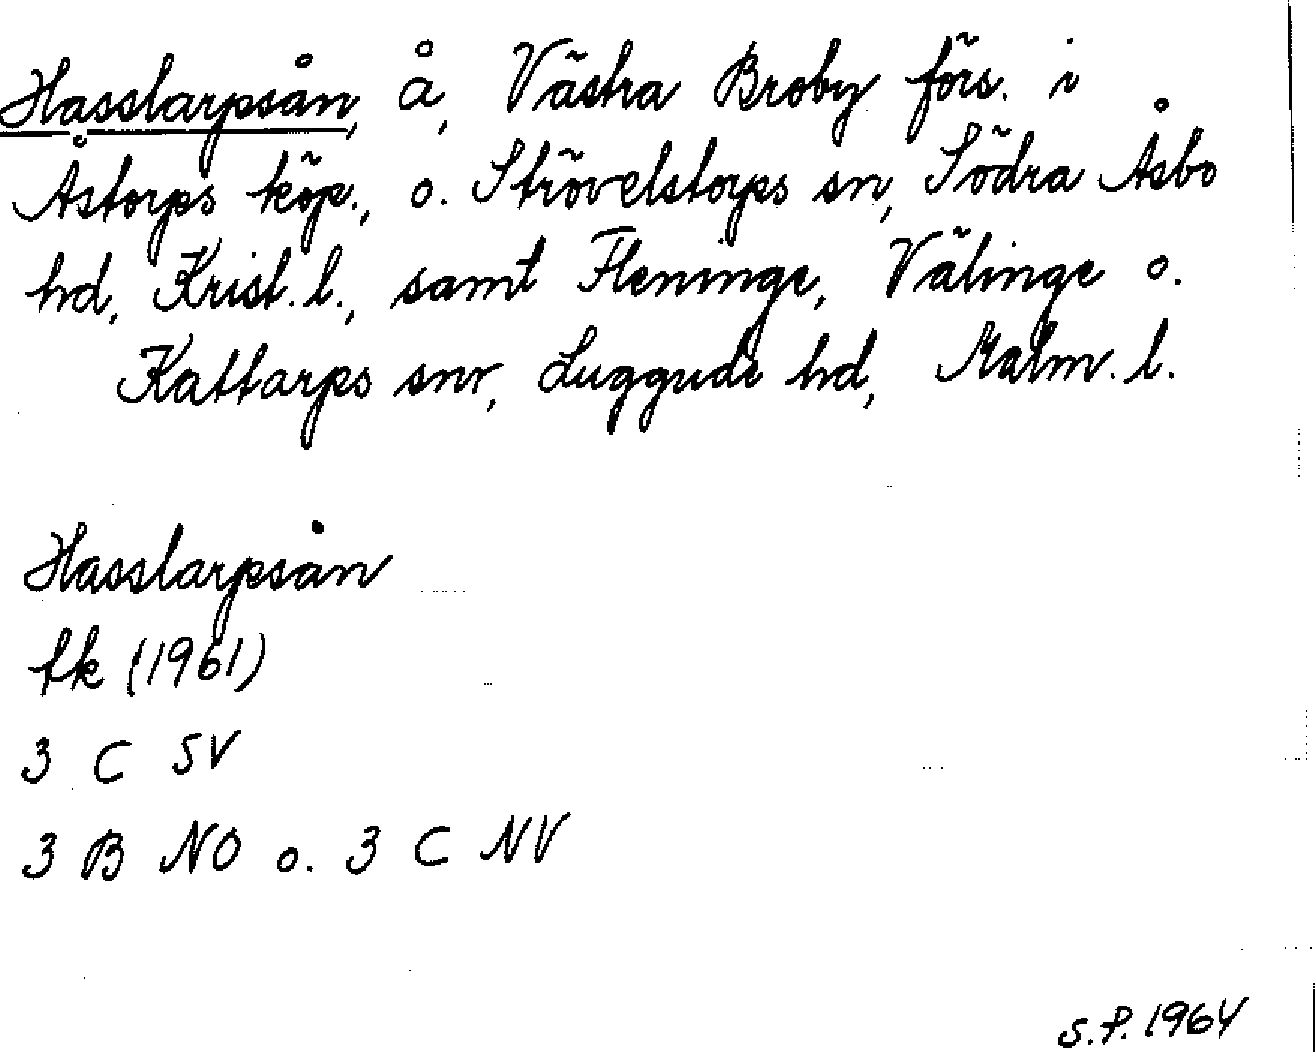 Hasslarpsån, å, Västra Broby förs. i
Åstorps köp., o. Strövelstorps sn, Södra Åsbo
hd, Krist. l., samt Fleninge, Välinge o.
Kattarps snr, Luggude hd, Malm. l.
Hasslarpsån
tk (1961)
3 C SV
3 B NO o. 3 C NV
S.P. 1964